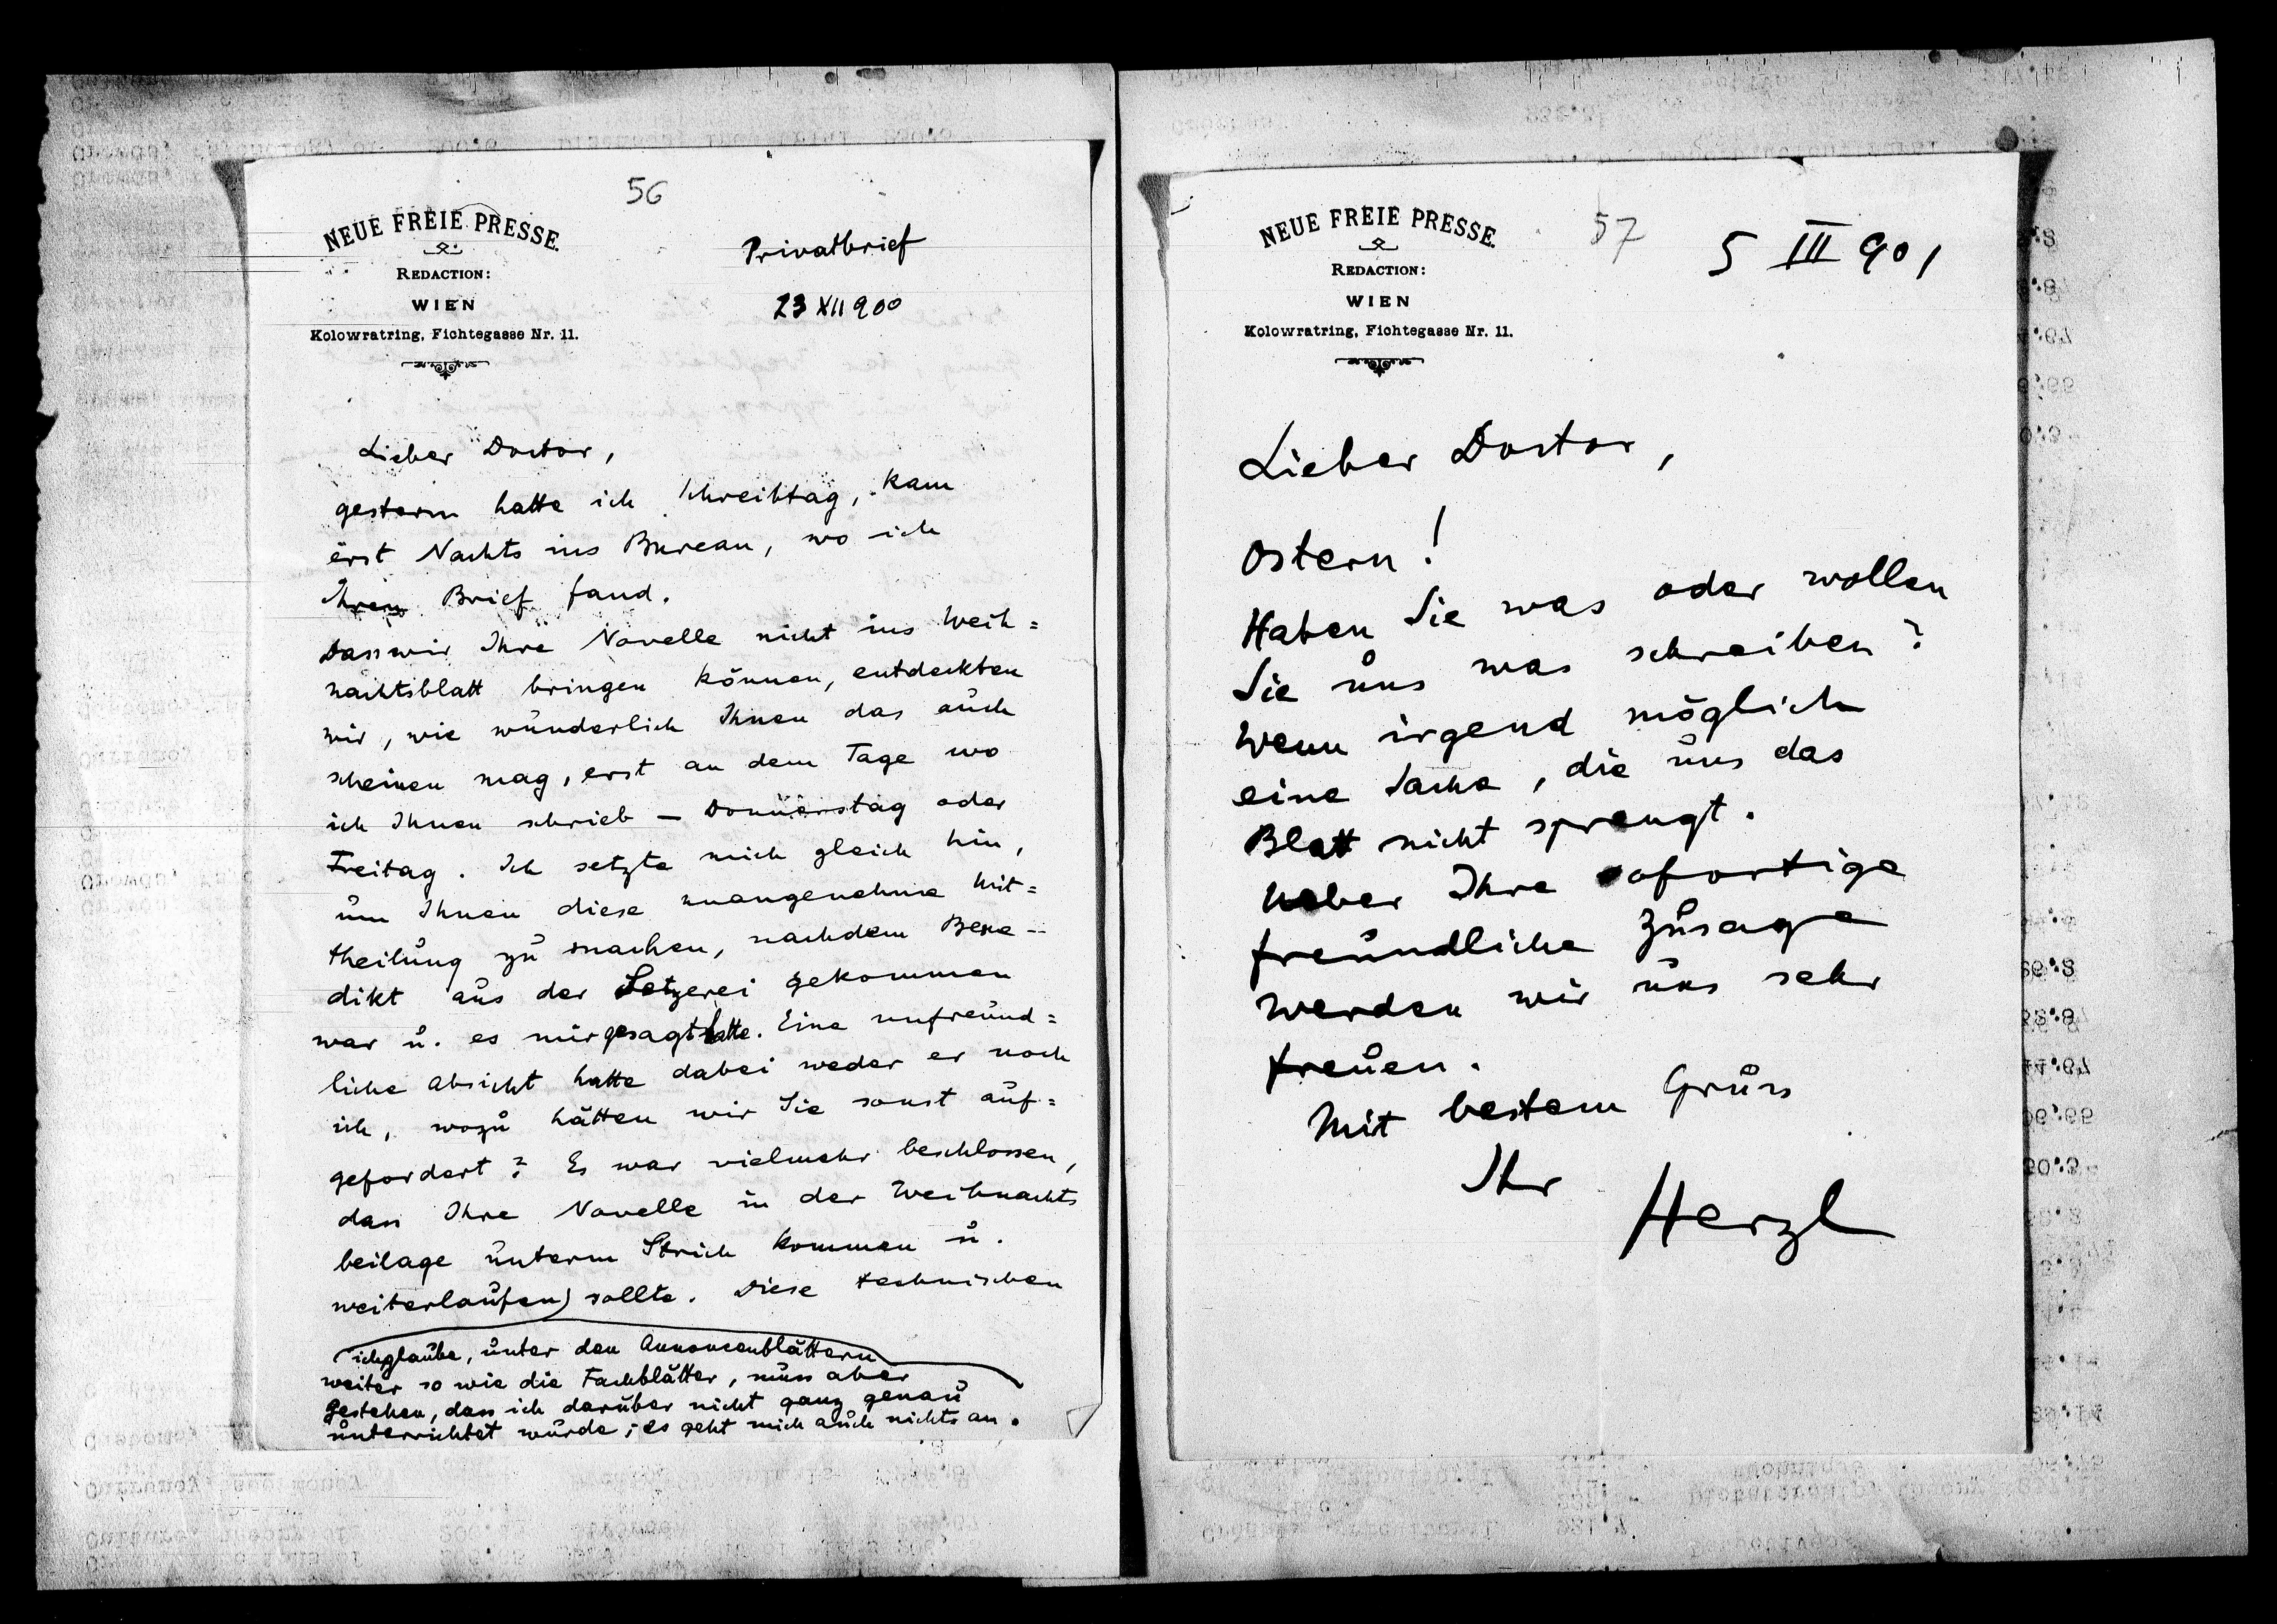 56
NEUE FREIE PRESSE.
REDACTION:
WIEN
Kolowratring, Fichtegasse Nr. 11.
Privatbrief
23 XII 900
Lieber Doctor,
gestern hatte ich Schreibtag, kam
erst Nachts ins Bureau, wo ich
Ihren Brief fand.
Dass wir Ihre Novelle nicht ins Weih=
nachtsblatt bringen können, entdeckten
wir, wie wunderlich Ihnen das auch
scheinen mag, erst an dem Tage wo
ich Ihnen schrieb — Donnerstag oder
Freitag. Ich setzte mich gleich hin,
um Ihnen diese unangenehme Mit=
theilung zu machen, nachdem Bene-
dikt aus der Setzerei gekommen
war u. es mir gesagt hatte. Eine unfreund=
liche Absicht hatte dabei weder er noch
ich, wozu hätten wir Sie sonst auf=
gefordert? Es war vielmehr beschlossen,
dass Ihre Novelle in der Weihnachts
beilage unterm Strich kommen u.
weiterlaufen) sollte. Diese technischen
ich glaube, unter den Annoncenblättern
weiter so wie die Fachblätter, muss aber
gestehen, dass ich darüber nicht ganz genau
unterrichtet wurde; es geht mich auch nichts an.
NEUE FREIE PRESSE.
REDACTION:
WIEN
Kolowratring, Fichtegasse Nr. 11.
57
5 III 901
Lieber Doctor,
Ostern!
Haben Sie was oder wollen
Sie uns was schreiben?
Wenn irgend möglich
eine Sache, die uns das
Blatt nicht sprengt.
Ueber Ihre sofortige
freundliche Zusage
werden wir uns sehr
freuen.
Mit bestem Gruss
Ihr
Herzl